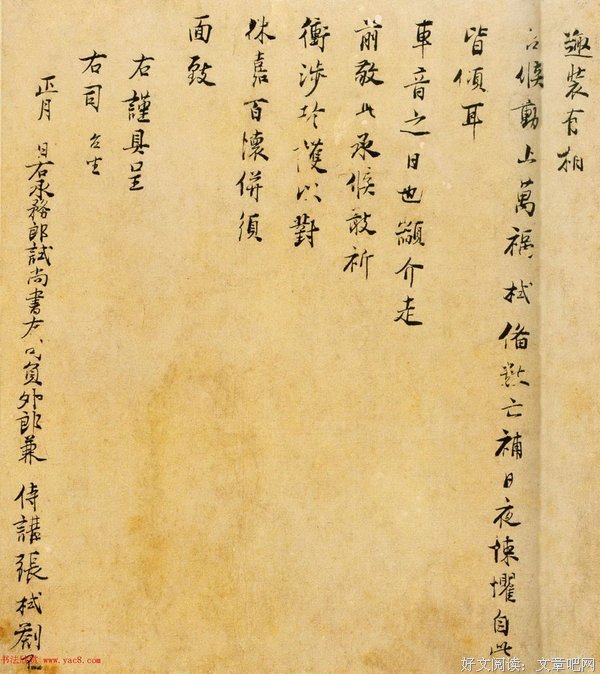 趣装有相
台候動止萬福栻備數亡補日夜悚懼自此
皆傾耳
車音之日也顓介走
前敬此承候敢祈
衝涉珍護以對
休嘉百懷併須
面致
右謹具呈
右司台坐
正月 日右承務郎試尚書左司員外郎兼侍講張栻劄子
书法欣赏 www.yac8.com
好文阅读:文章吧网